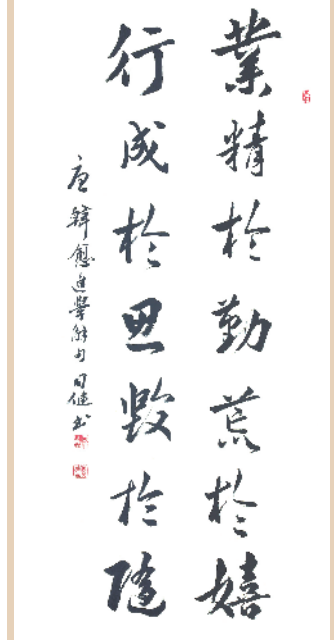 業精於勤荒於嬉
行成於思毀於隨
唐韓愈進學解句健书